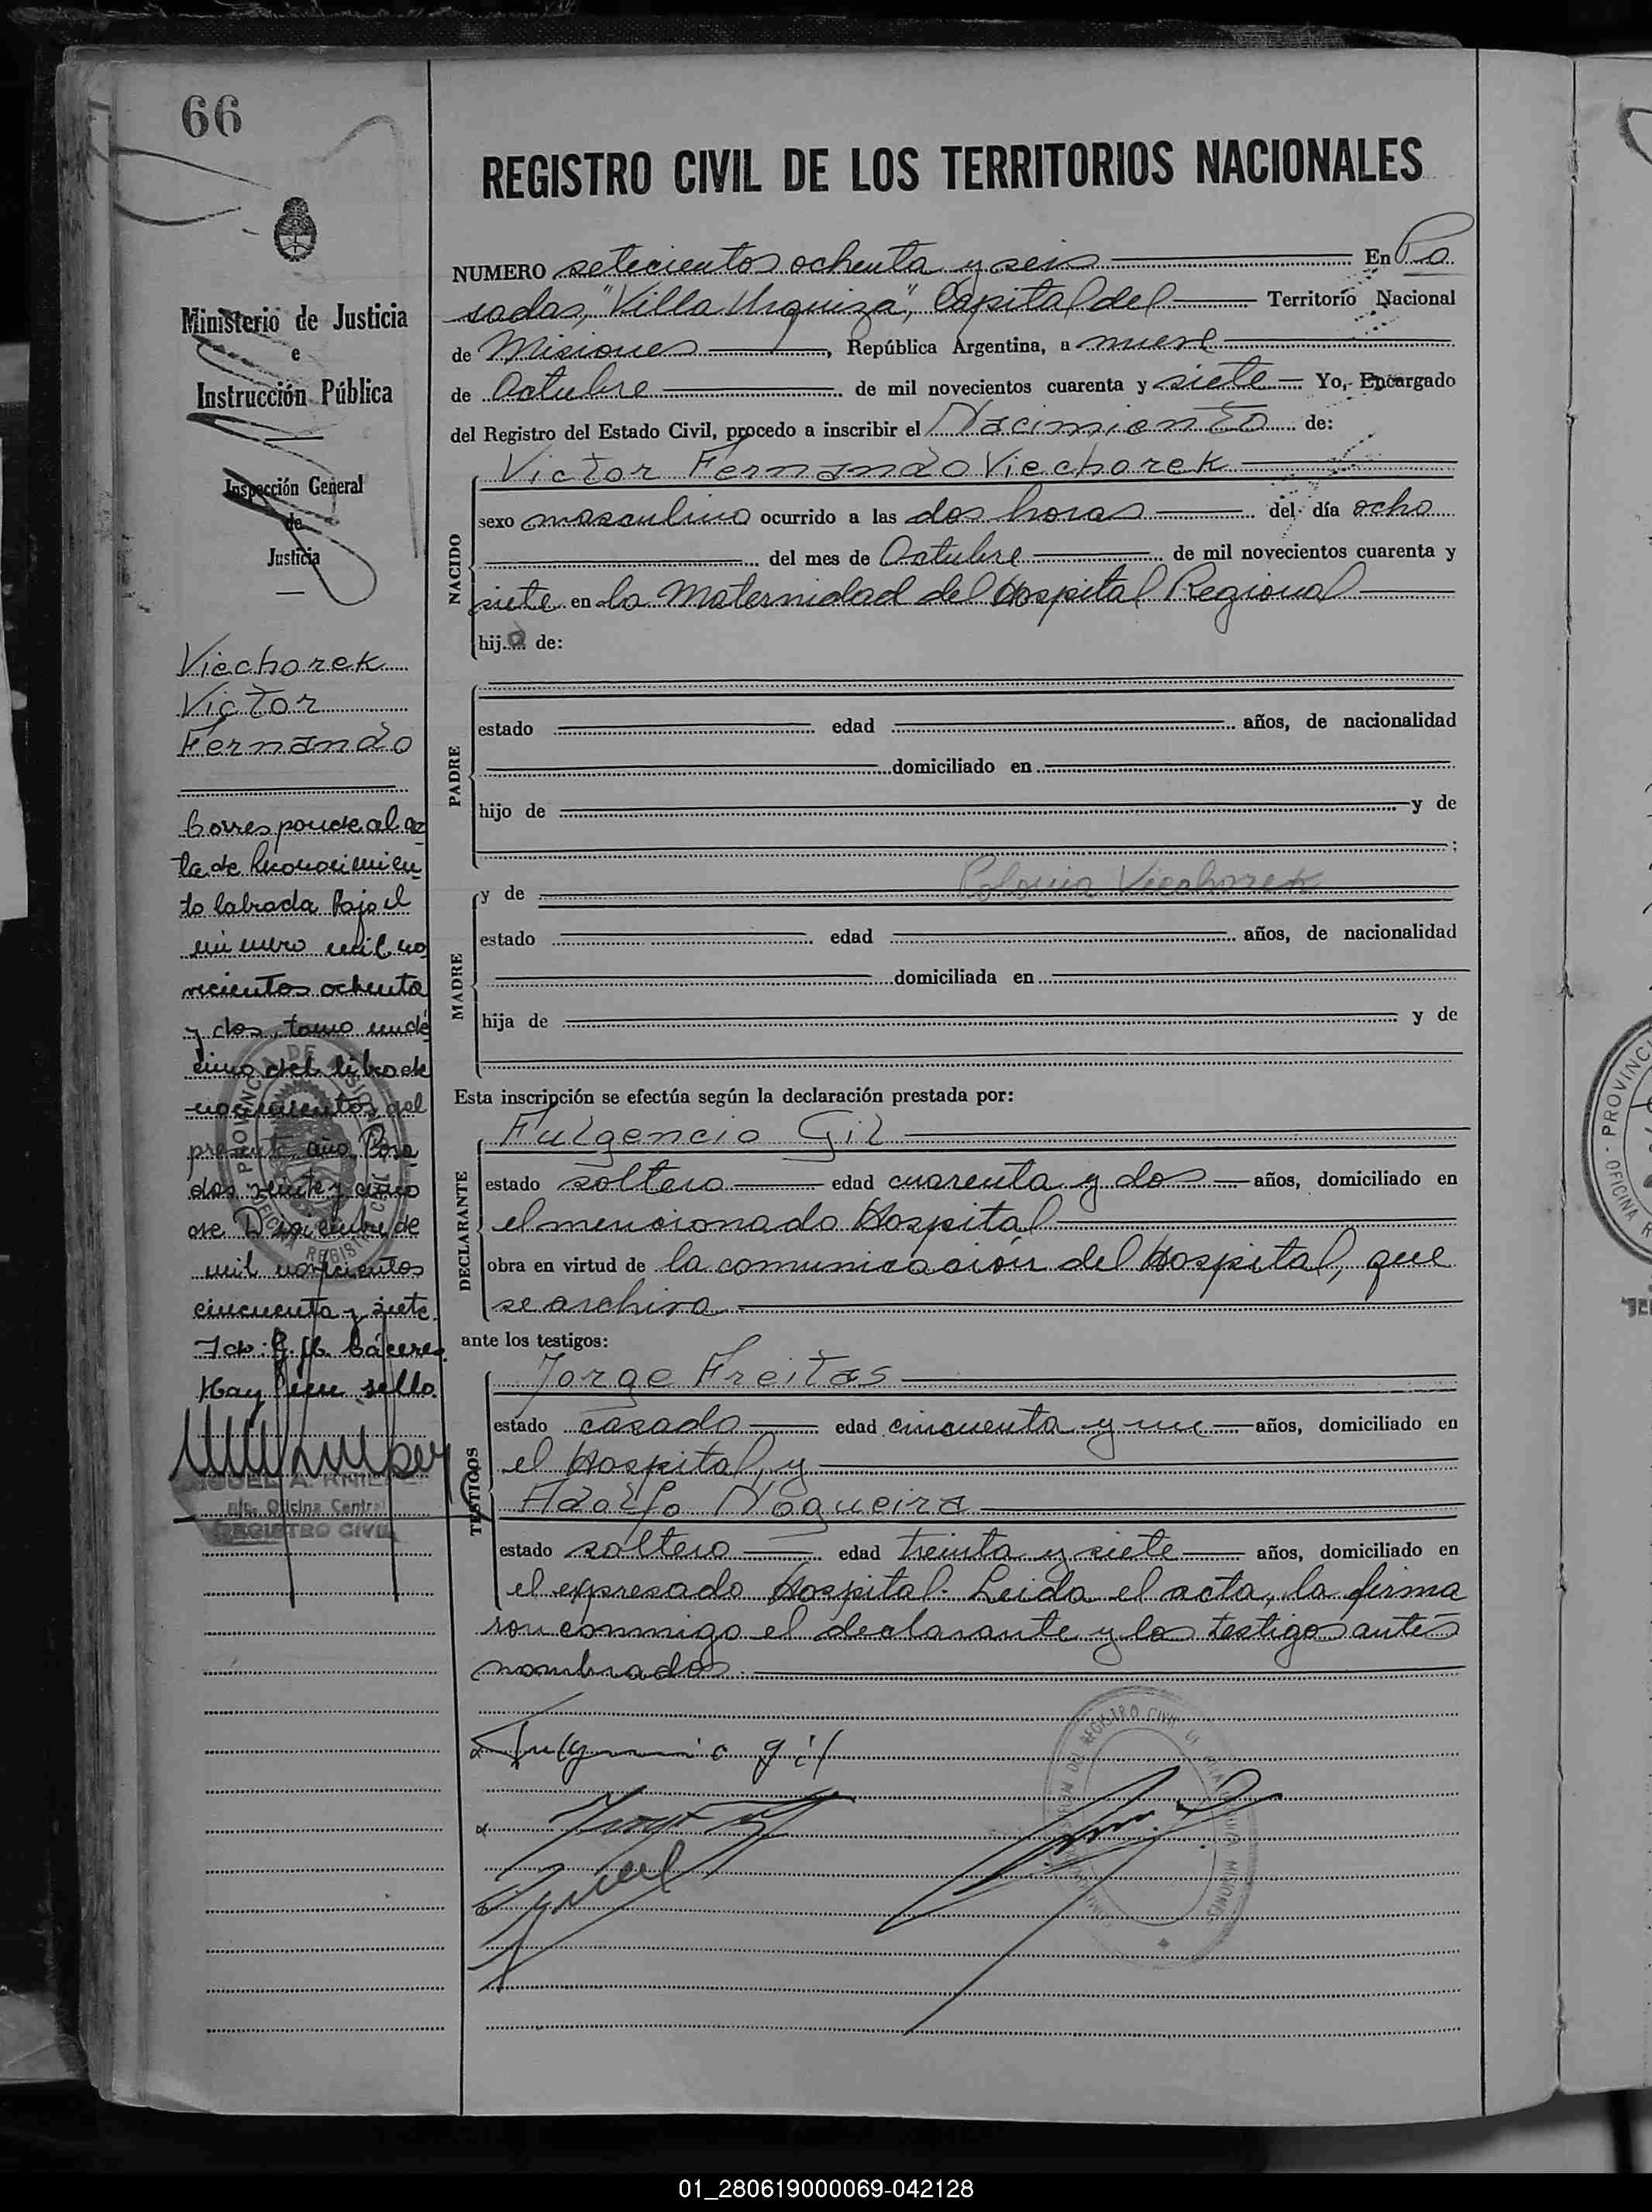 66
REGISTRO CIVIL DE LOS TERRITORIOS NACIONALES
Ministerio de Justicia
e
Instrucción Pública
Inspección General
de
Justicia
Viechorek
Victor
Fernando
Corresponde al ac
ta de Reconocimien
to labrada bajo el
número mil no
vecientos ochenta
y dos, tomo undé
cimo del libro de
nacimientos del
presente año. Posa
das, veinte y cinco
de Diciembre de
mil novecientos
cincuenta y siete.
Fdo: G. M. Cáceres.
Hay un sello.
MIGUEL A. KNI
a/c. Oficina Central
REGISTRO CIVIL
NUMERO setecientos ochenta y seis En Po
sadas, "Villa Urquiza", Capital del Territorio Nacional
de Misiones, República Argentina, a nueve
de Octubre de mil novecientos cuarenta y siete Yo, Encargado
del Registro del Estado Civil, procedo a inscribir el Nacimiento de:
NACIDO
Victor Fernando Viechorek
sexo masculino ocurrido a las dos horas del día ocho
del mes de Octubre de mil novecientos cuarenta y
siete en la Maternidad del Hospital Regional
hijo de:
PADRE
estado edad años, de nacionalidad
domiciliado en
hijo de y de
;
MADRE
y de Viechorek
estado edad años, de nacionalidad
domiciliada en
hija de y de
Esta inscripción se efectúa según la declaración prestada por:
DECLARANTE
Fulgencio Gil
estado soltero edad cuarenta y dos años, domiciliado en
el mencionado Hospital
obra en virtud de la comunicación del Hospital, que
se archiva
ante los testigos:
TESTIGOS
Jorge Freitas
estado casado edad cincuenta y un años, domiciliado en
el Hospital, y
Adolfo Nogueira
estado soltero edad treinta y siete años, domiciliado en
el expresado Hospital. Leida el acta, la firma
ron conmigo el declarante y los testigos antes
nombrados.
Fulgencio gil
01_280619000069-042128